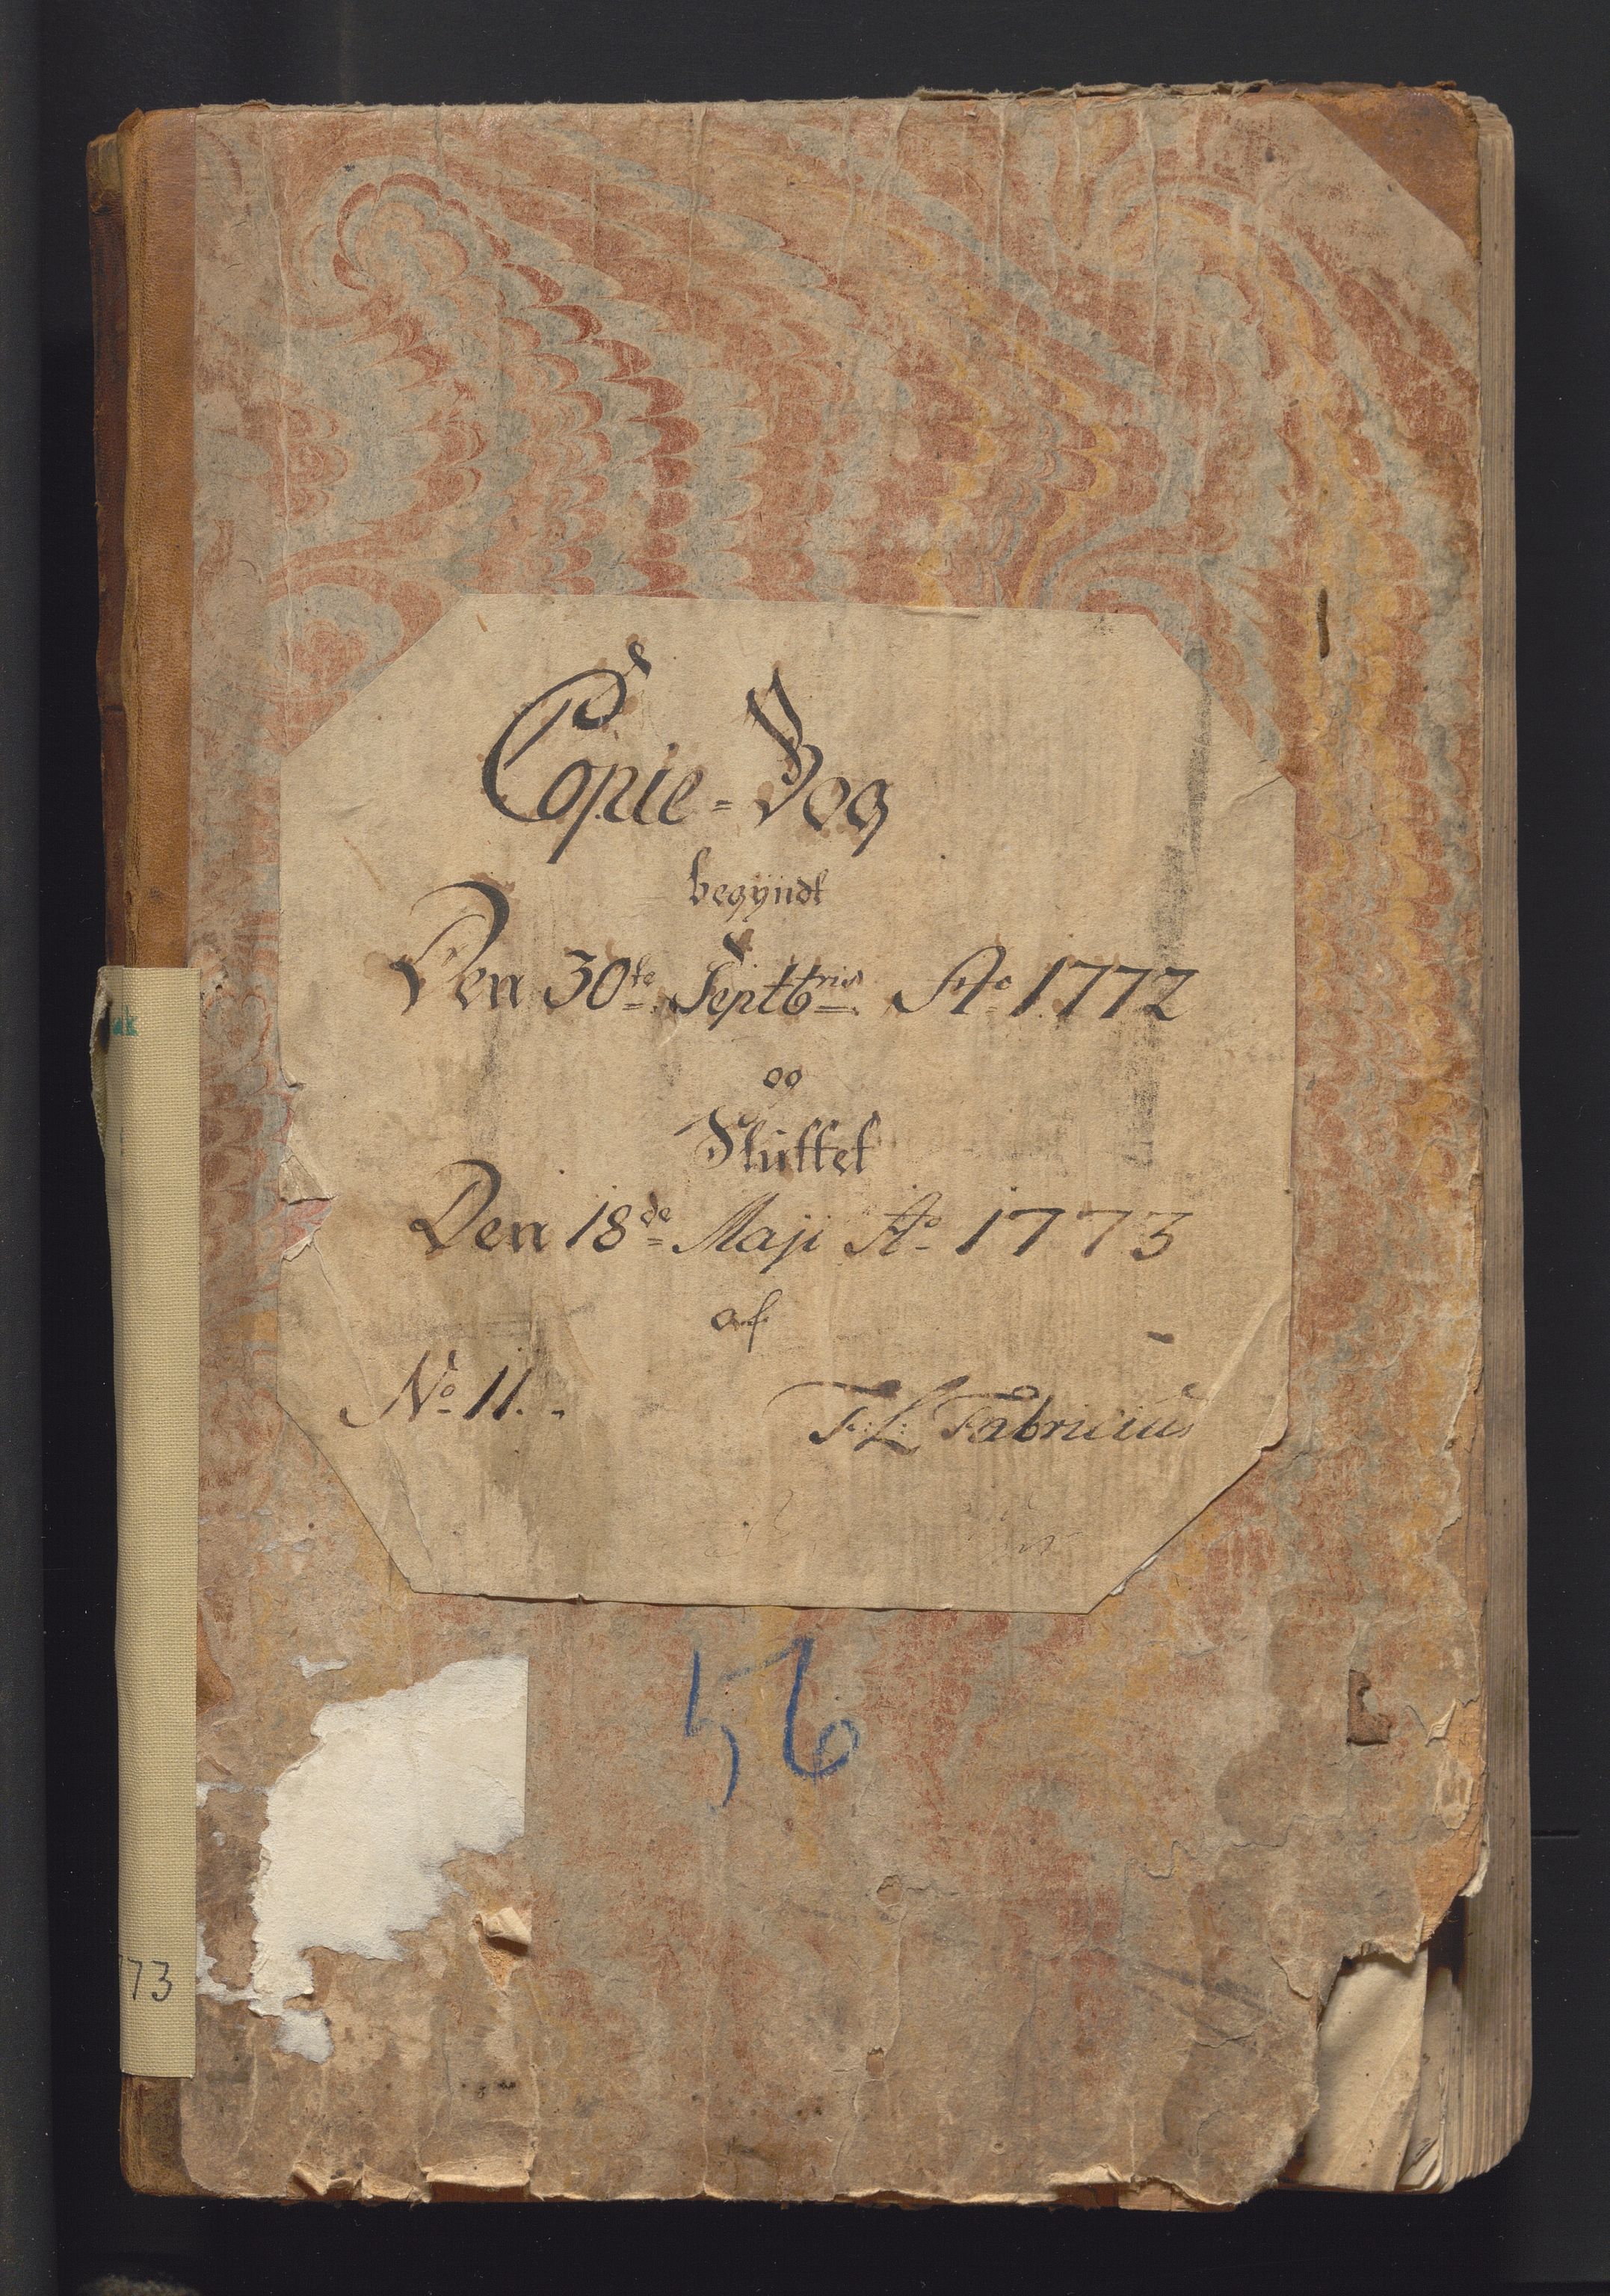 Copie-Bog
begyndt
Den 30te Septbris Ao 1772
og
Sluttet
Den 18de Maji Ao 1773
af
No 11.
F:L: Fabricius
56
73